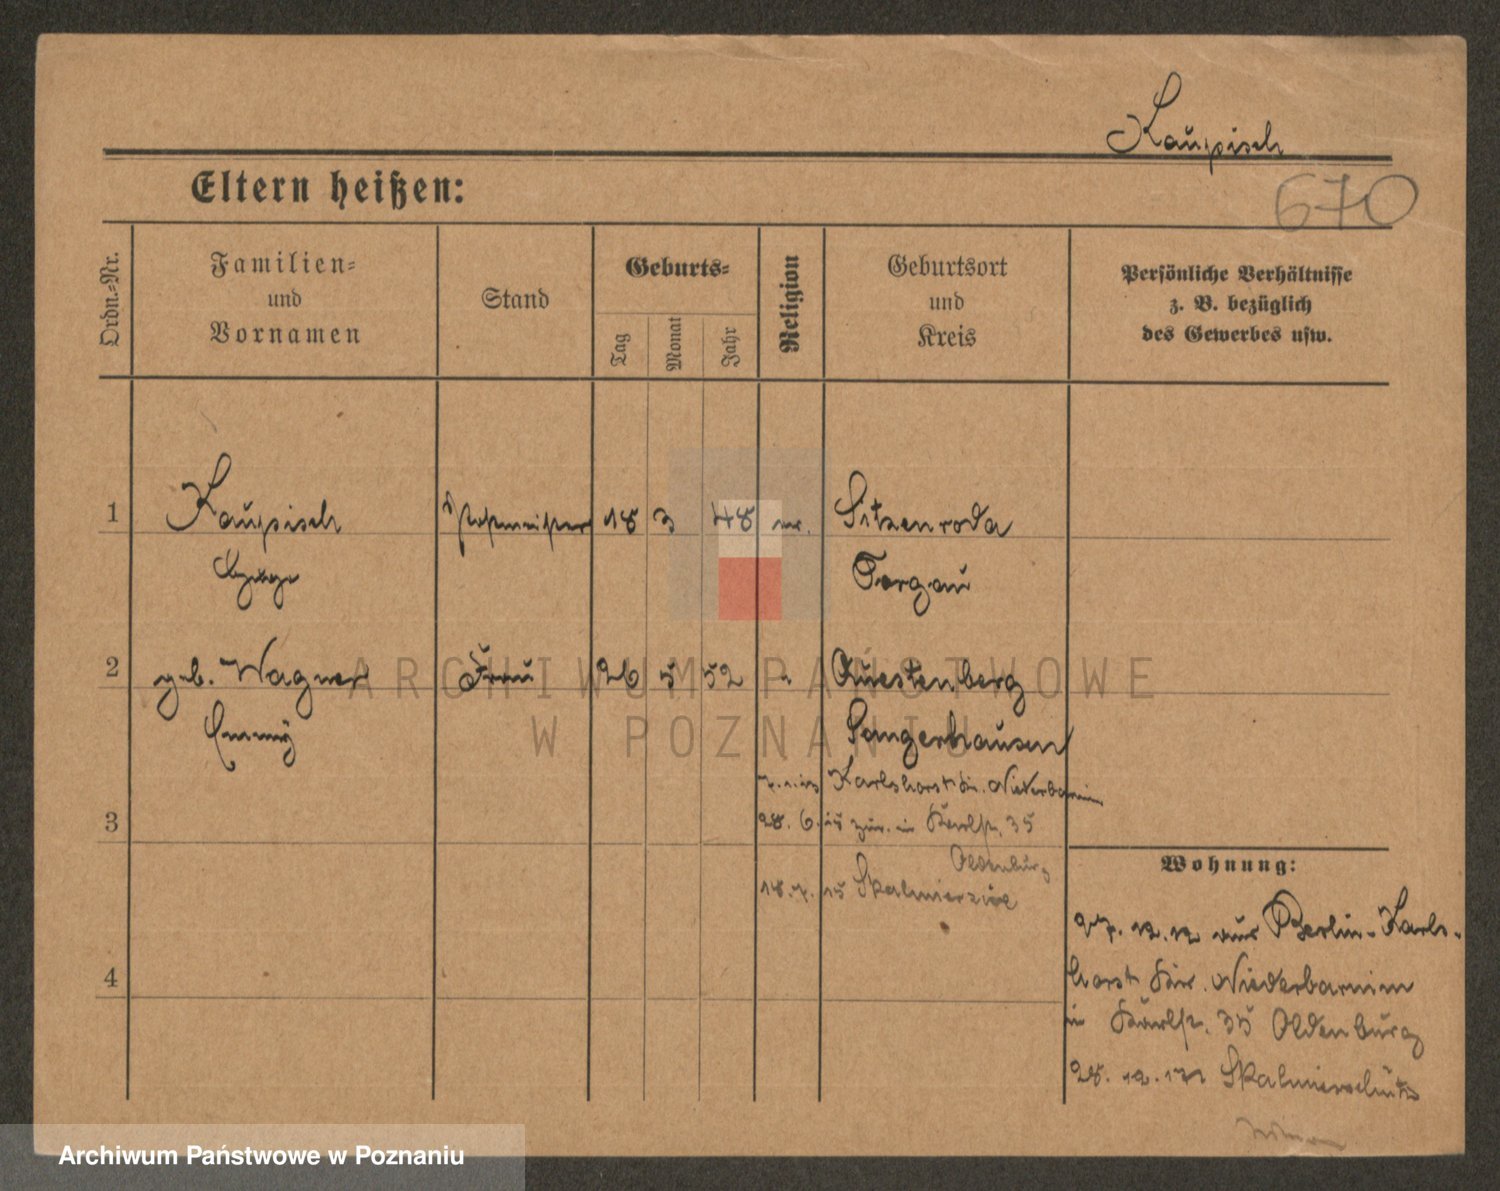 Kaupisch
670
Eltern heißen:
Ordn.-Nr.
Familien-
und
Vornamen
Stand
Geburts-
Tag
Monat
Jahr
Religion
Geburtsort
und
Kreis
Persönliche Verhältnisse
z. B. bezüglich
des Gewerbes usw.
1 Kaupisch Postmeister 18 3 48 Sitzenroda
Torgau
2 geb. Wagner Frau 26 5 52 Questenberg
Emmy Sangerhausen
Karlshorst Kr. Niederbarnim
3 28. 6. 15 in Karlstr. 35
Oldenburg
18. 7. 15 Skalmierzüc
4
Wohnung:
27. 12. 12 aus Berlin-Karls-
horst Kr. Niederbarnim
in Karlstr. 35 Oldenburg
28. 12. Skalmierschütz
ARCHIWUM PAŃSTWOWE
W POZNANIU
Archiwum Państwowe w Poznaniu